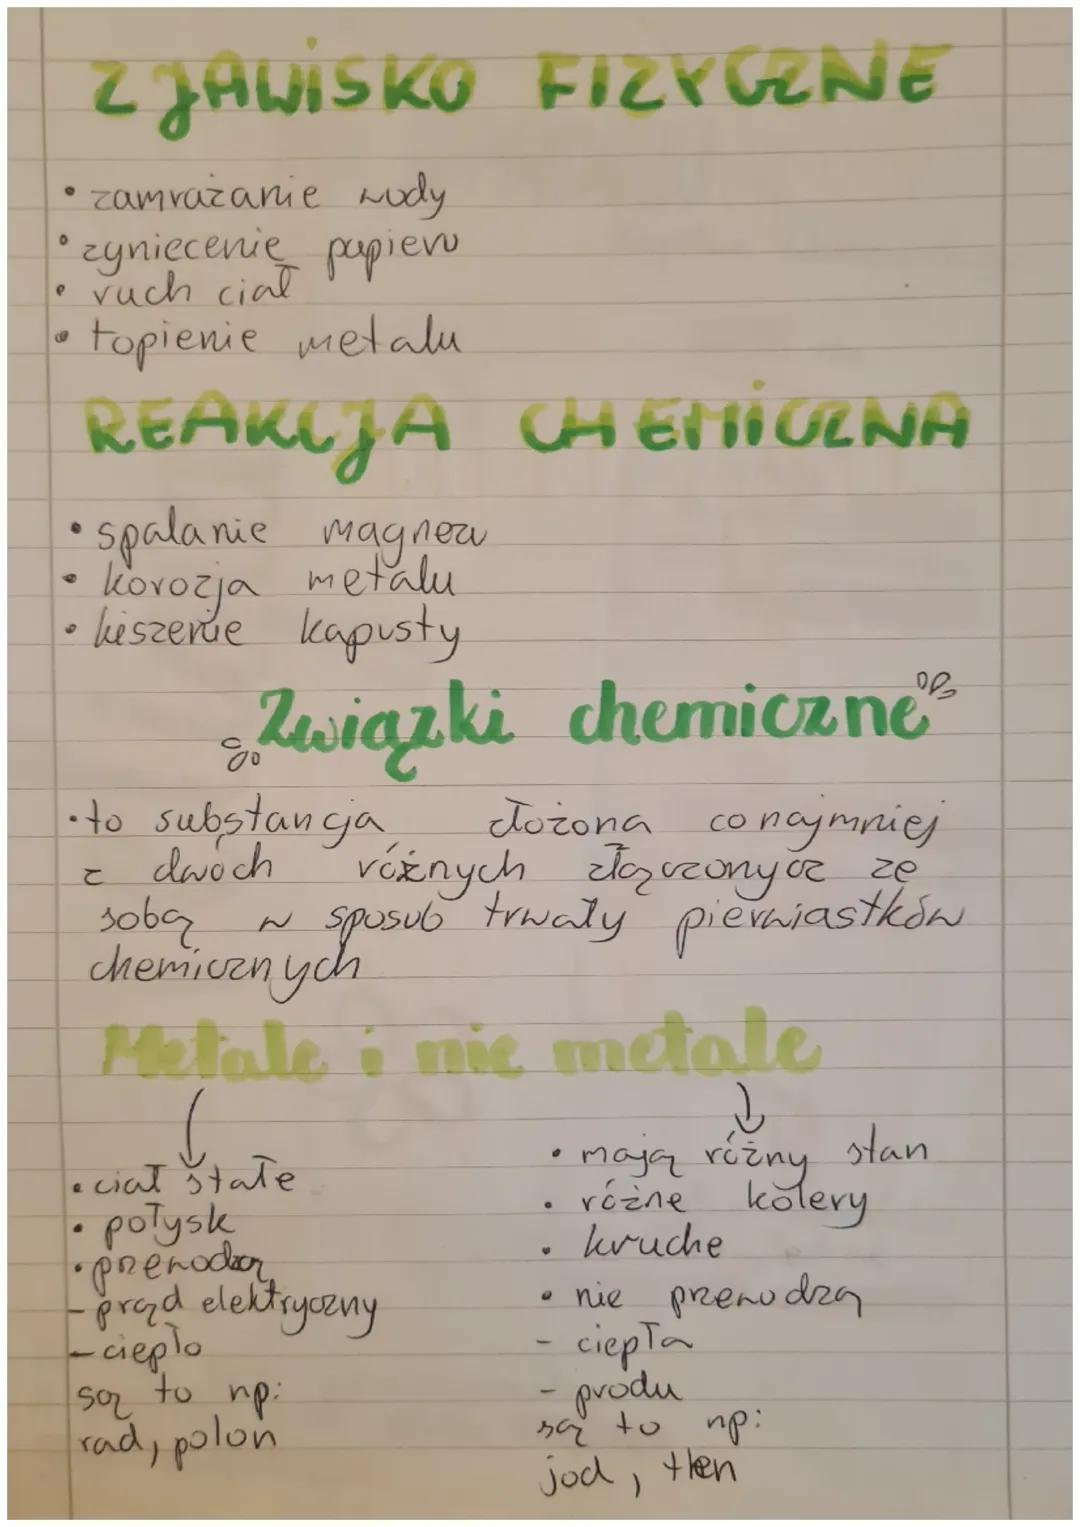 ZJAWISKO FIZYCZNE
• zamrażanie wody
• zgniecenie papieru
• ruch ciał
• topienie metalu
REAKCJA CHEMICZNA
• spalanie magnezu
• korozja metalu
• kiszenie kapusty
Związki chemiczne
• to substancja złożona conajmniej
z dwóch różnych złączonych ze
sobą w sposub trwały pierwiastków
chemicznych
Metale i nie metale
• ciał stałe
• połysk
• przewodzą
- prąd elektryczny
- ciepło
są to np:
rad, polon
• mają różny stan
• różne kolery
• kruche
• nie przewodzą
- ciepła
- prądu
są to np:
jod, tlen